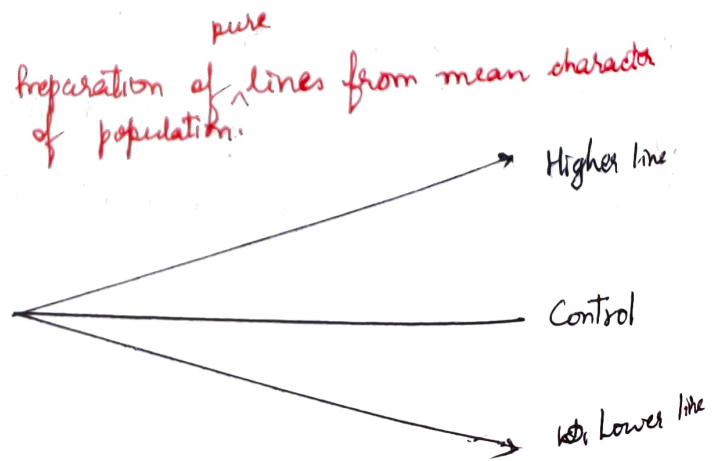 Preparation of pure lines from mean character
of population.
Higher line
Control
Lower line